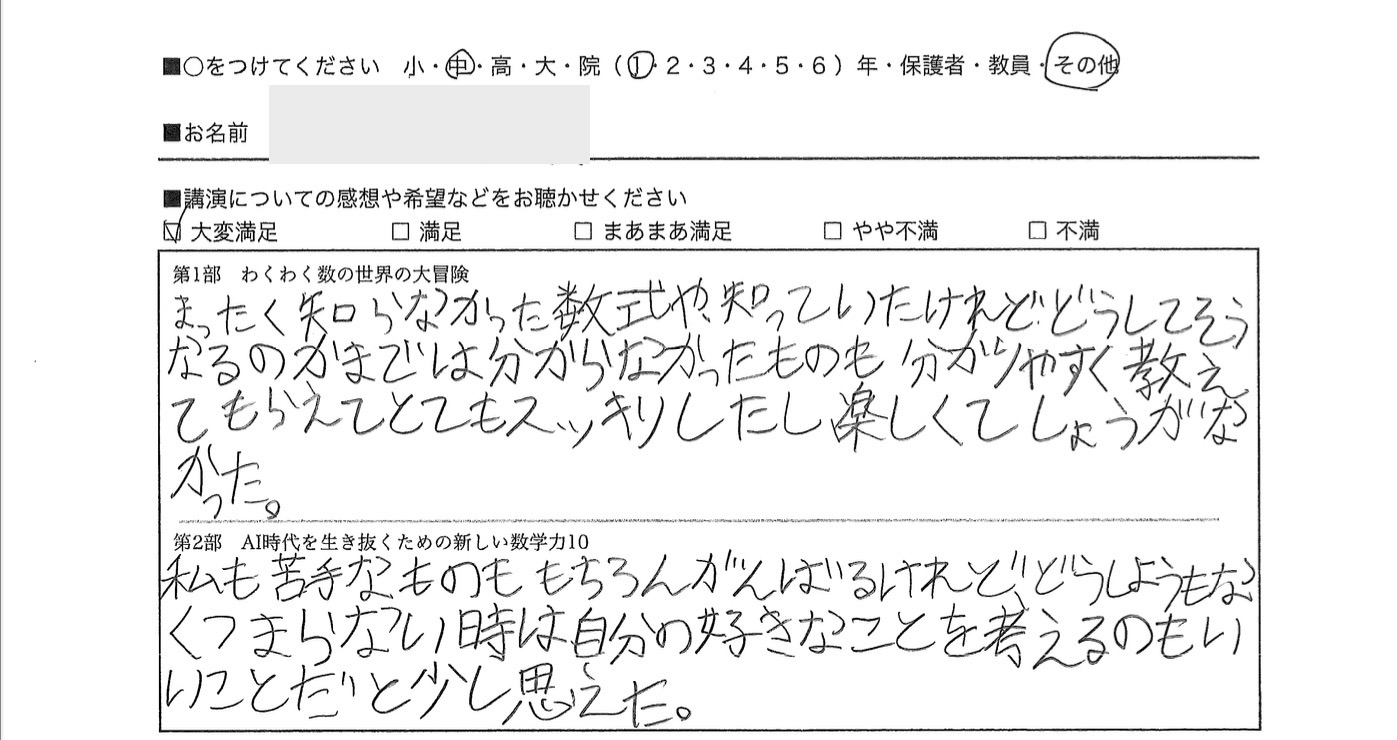 ■○をつけてください　小・中・高・大・院（1・2・3・4・5・6）年・保護者・教員・その他
■お名前
■講演についての感想や希望などをお聴かせください
☑ 大変満足　□ 満足　□ まあまあ満足　□ やや不満　□ 不満
第1部　わくわく数の世界の大冒険
まったく知らなかった数式や、知っていたけれどどうしてそう
なるのかまでは分からなかったものも分かりやすく教え
てもらえてとてもスッキリしたし楽しくてしょうがな
かった。
第2部　AI時代を生き抜くための新しい数学力10
私も苦手なものももちろんがんばるけれど、どうしようもな
くつまらない時は自分の好きなことを考えるのもい
いことだと少し思えた。